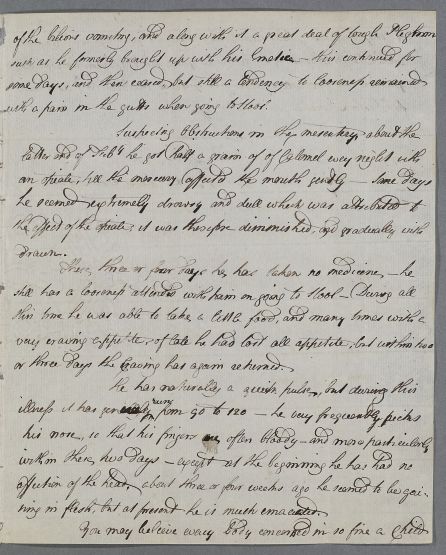 of the bilious vomiting, and along with it a great deal of tough Phlegm
such as he formerly brought up with his Emetics – this continued for
some days, and then ceased, but still a tendency to looseness remained
with a pain in the gutts when going to stool.
Suspecting Obstructions in the mesentery about the
latter end of Feb.y he got half a grain of Calomel every night with
an opiate, till the mercury affected the mouth gently – some days
he seemed extremely drowsy and dull which was attributed to
the effect of the opiate, it was therefore diminished, and gradually with
drawn.
These three or four days he has taken no medicine, – he
still has a looseness attended with pain in going to stool – During all
this time he was able to take a little food, and many times with a
very craving appetite, of late he had lost all appetite, but within two
or three days the craving has again returned.
He has naturally a quick pulse, but during this
illness it has rung from 90 to 120 – he very frequently picks
his nose, so that his fingers are often bloody – and more particularly
within these two days – except at the beginning he has had no
affection of the head, about three or four weeks ago he seemed to be gai-
ning in flesh, but at present he is much emaciated.
You may believe every Body concerned in so fine a Child